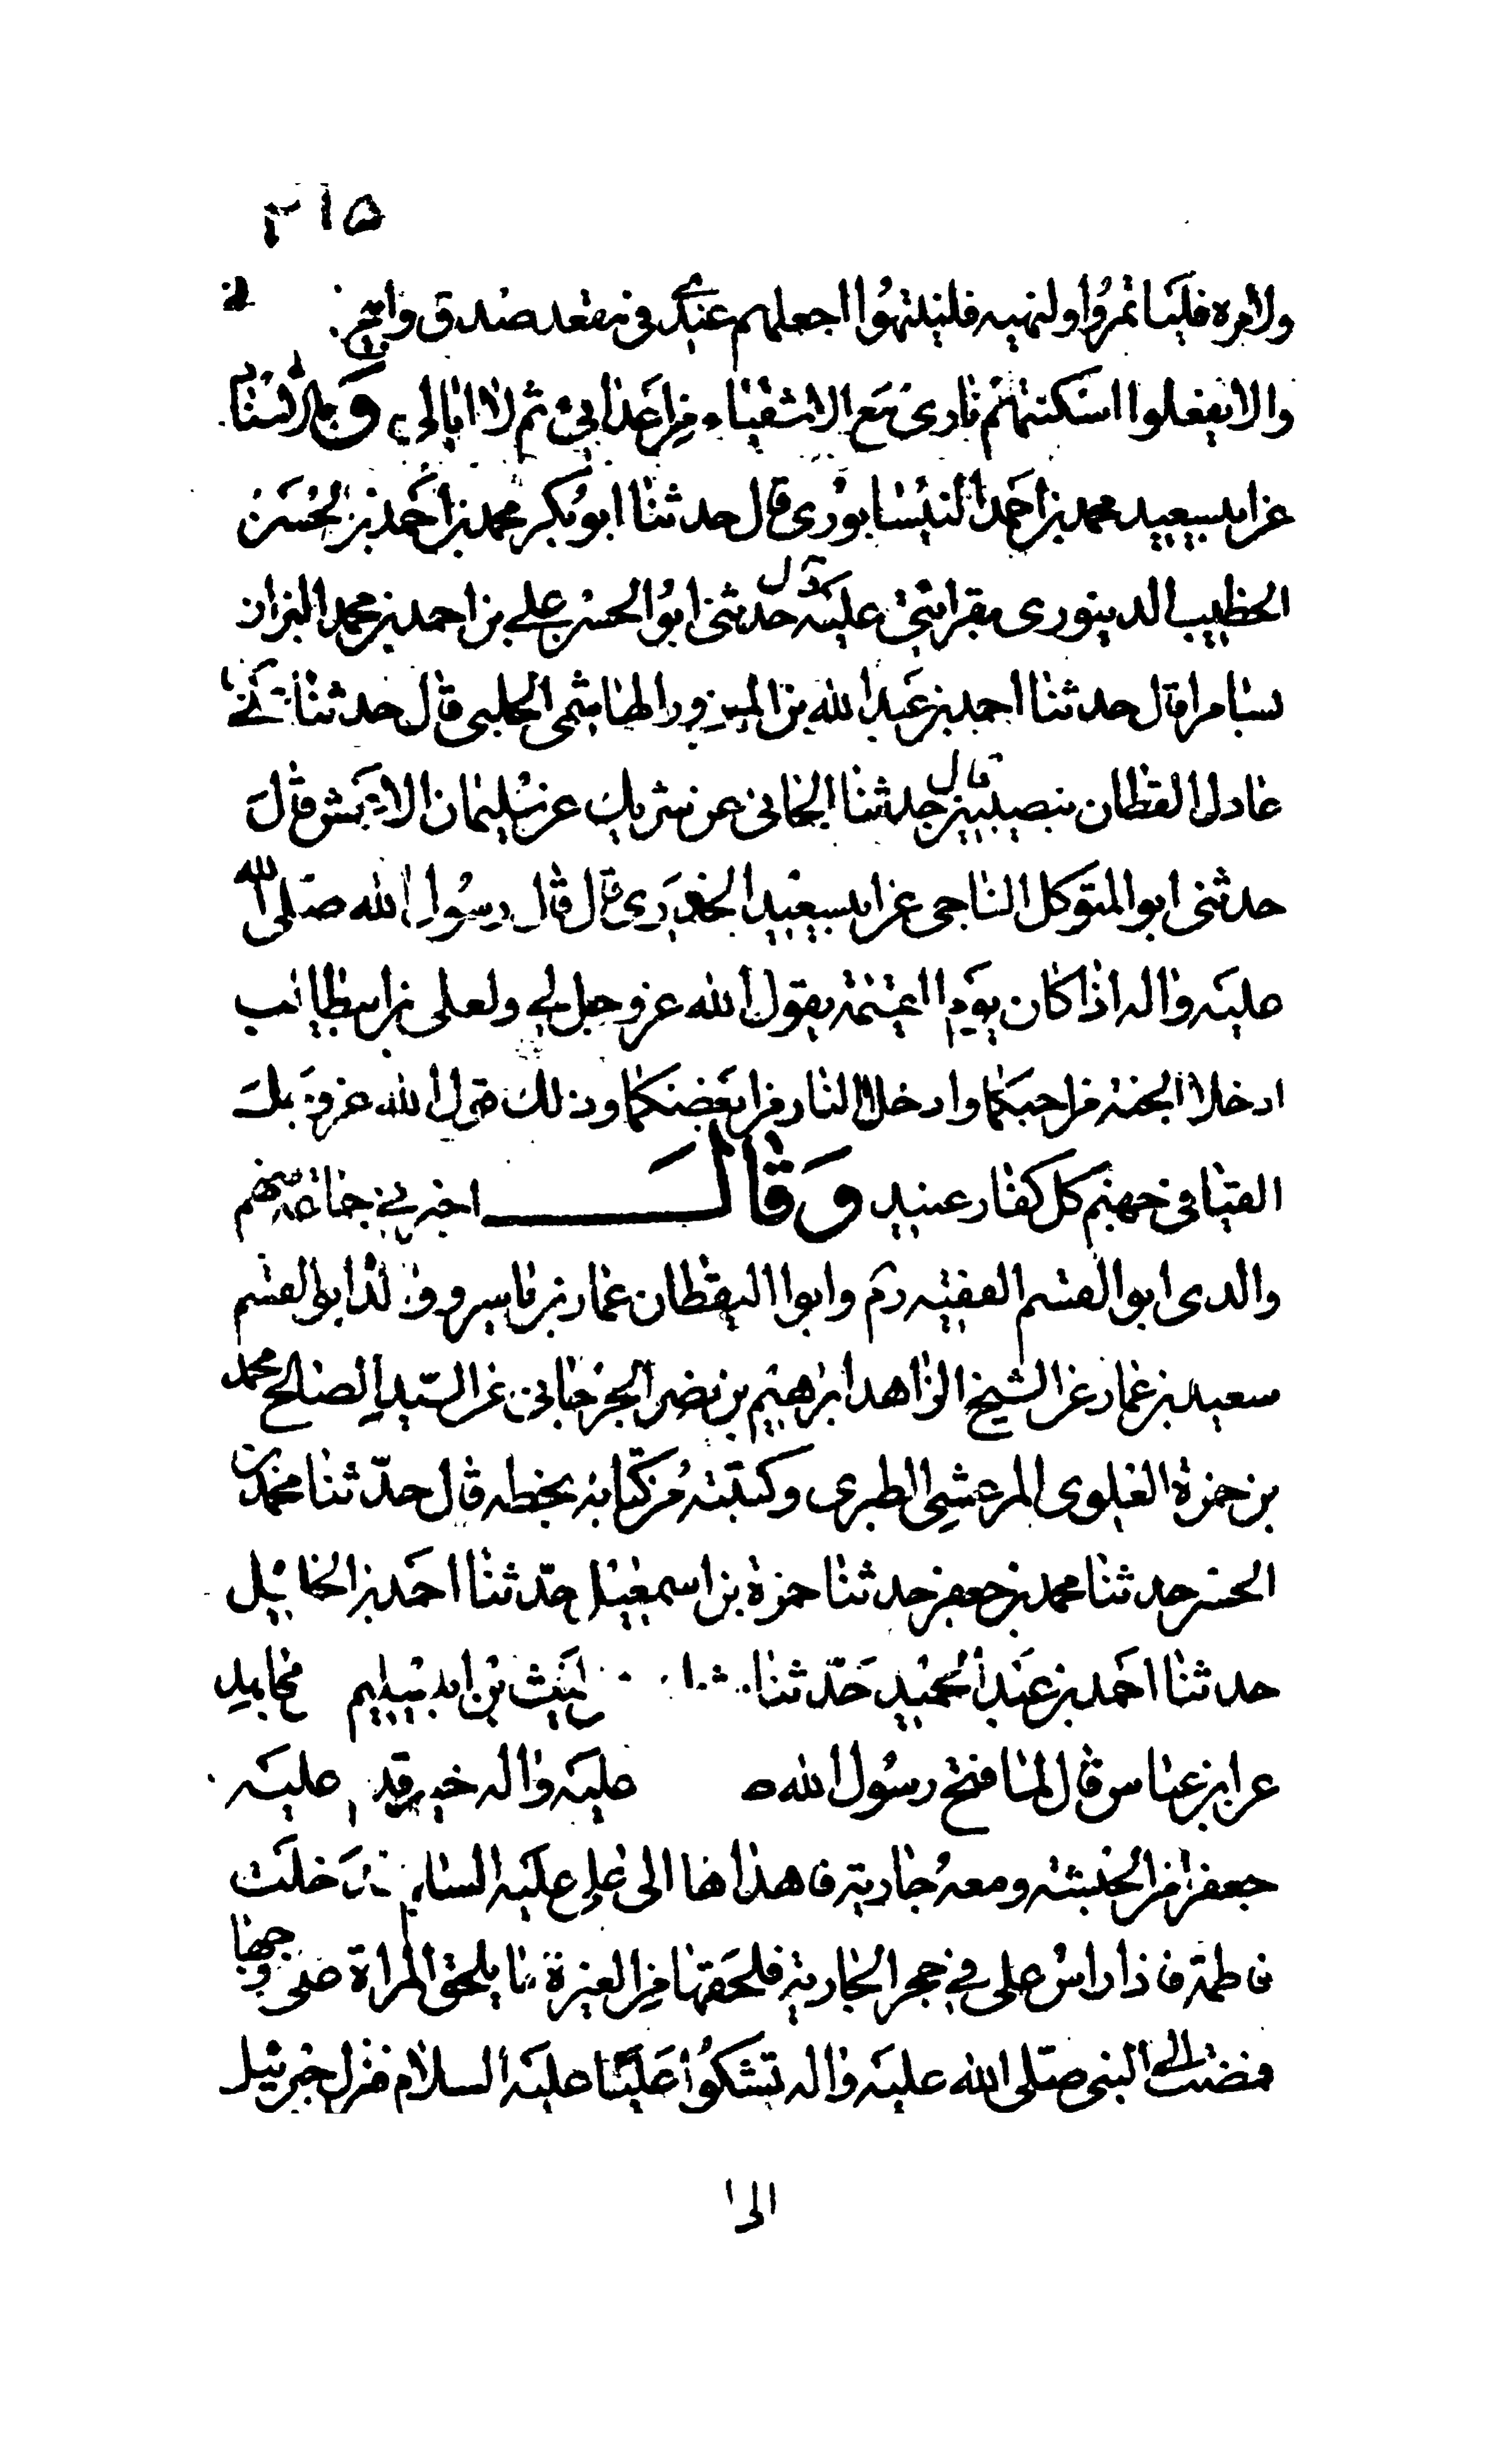 ٣١٥
ولامره فليأتمروا ولنهيه فلينتهوا اجعلهم عندى فى مقعد صدق
والا يفعلوا اسكنتهم نارى مع الاشقياء من اعدائى ثم لا ابالى وبالاسناد
عن ابى سعيد محمد بن احمد النيسابورى قال حدثنا ابو بكر محمد بن احمد بن الحسن
الخطيب الدينورى بقرائتى عليه قال حدثنى ابو الحسن على بن احمد بن محمد البزاز
بسامرا قال حدثنا احمد بن عبد الله بن الهاشمى الحلبى قال حدثنا
عادل القطان بنصيبين قال حدثنا الحمانى عن شريك عن سليمان الاعمش قال
حدثنى ابو المتوكل الناجى عن ابى سعيد الخدرى قال قال رسول الله صلى الله
عليه واله اذا كان يوم القيمة يقول الله عز وجل لى ولعلى بن ابيطالب
ادخلا الجنة من احبكما وادخلا النار من ابغضكما وذلك قول الله عز وجل
القيا فى جهنم كل كفار عنيد وقال اخبرنى جماعة منهم
والدى ابو القسم الفقيه رم وابو اليقظان عمار بن ياسر وولده ابو القسم
سعد بن عمار عن الشيخ الزاهد ابرهيم بن نصر الجرجانى عن السيد الصالح محمد
بن حمزة العلوى المرعشى الطبرى وكتبته من كتابه بخطه قال حدثنا محمد بن
الحسن حدثنا محمد بن جعفر حدثنا حمزة بن اسمعيل حدثنا احمد بن الخليل
حدثنا احمد بن عبد الحميد حدثنا ليث بن ابى سليم مجاهد
عن ابن عباس قال لما فتح رسول الله ص عليه واله خيبر قدم عليه
جعفر من الحبشة ومعه جارية فاهداها الى على عليه السلام فدخلت
فاطمة فاذا راس على فى حجر الجارية فلحقها من الغيرة ما يلحق المراة على زوجها
فمضت الى النبى صلى الله عليه واله تشكو عليا عليه السلام فنزل جبرئيل
الى